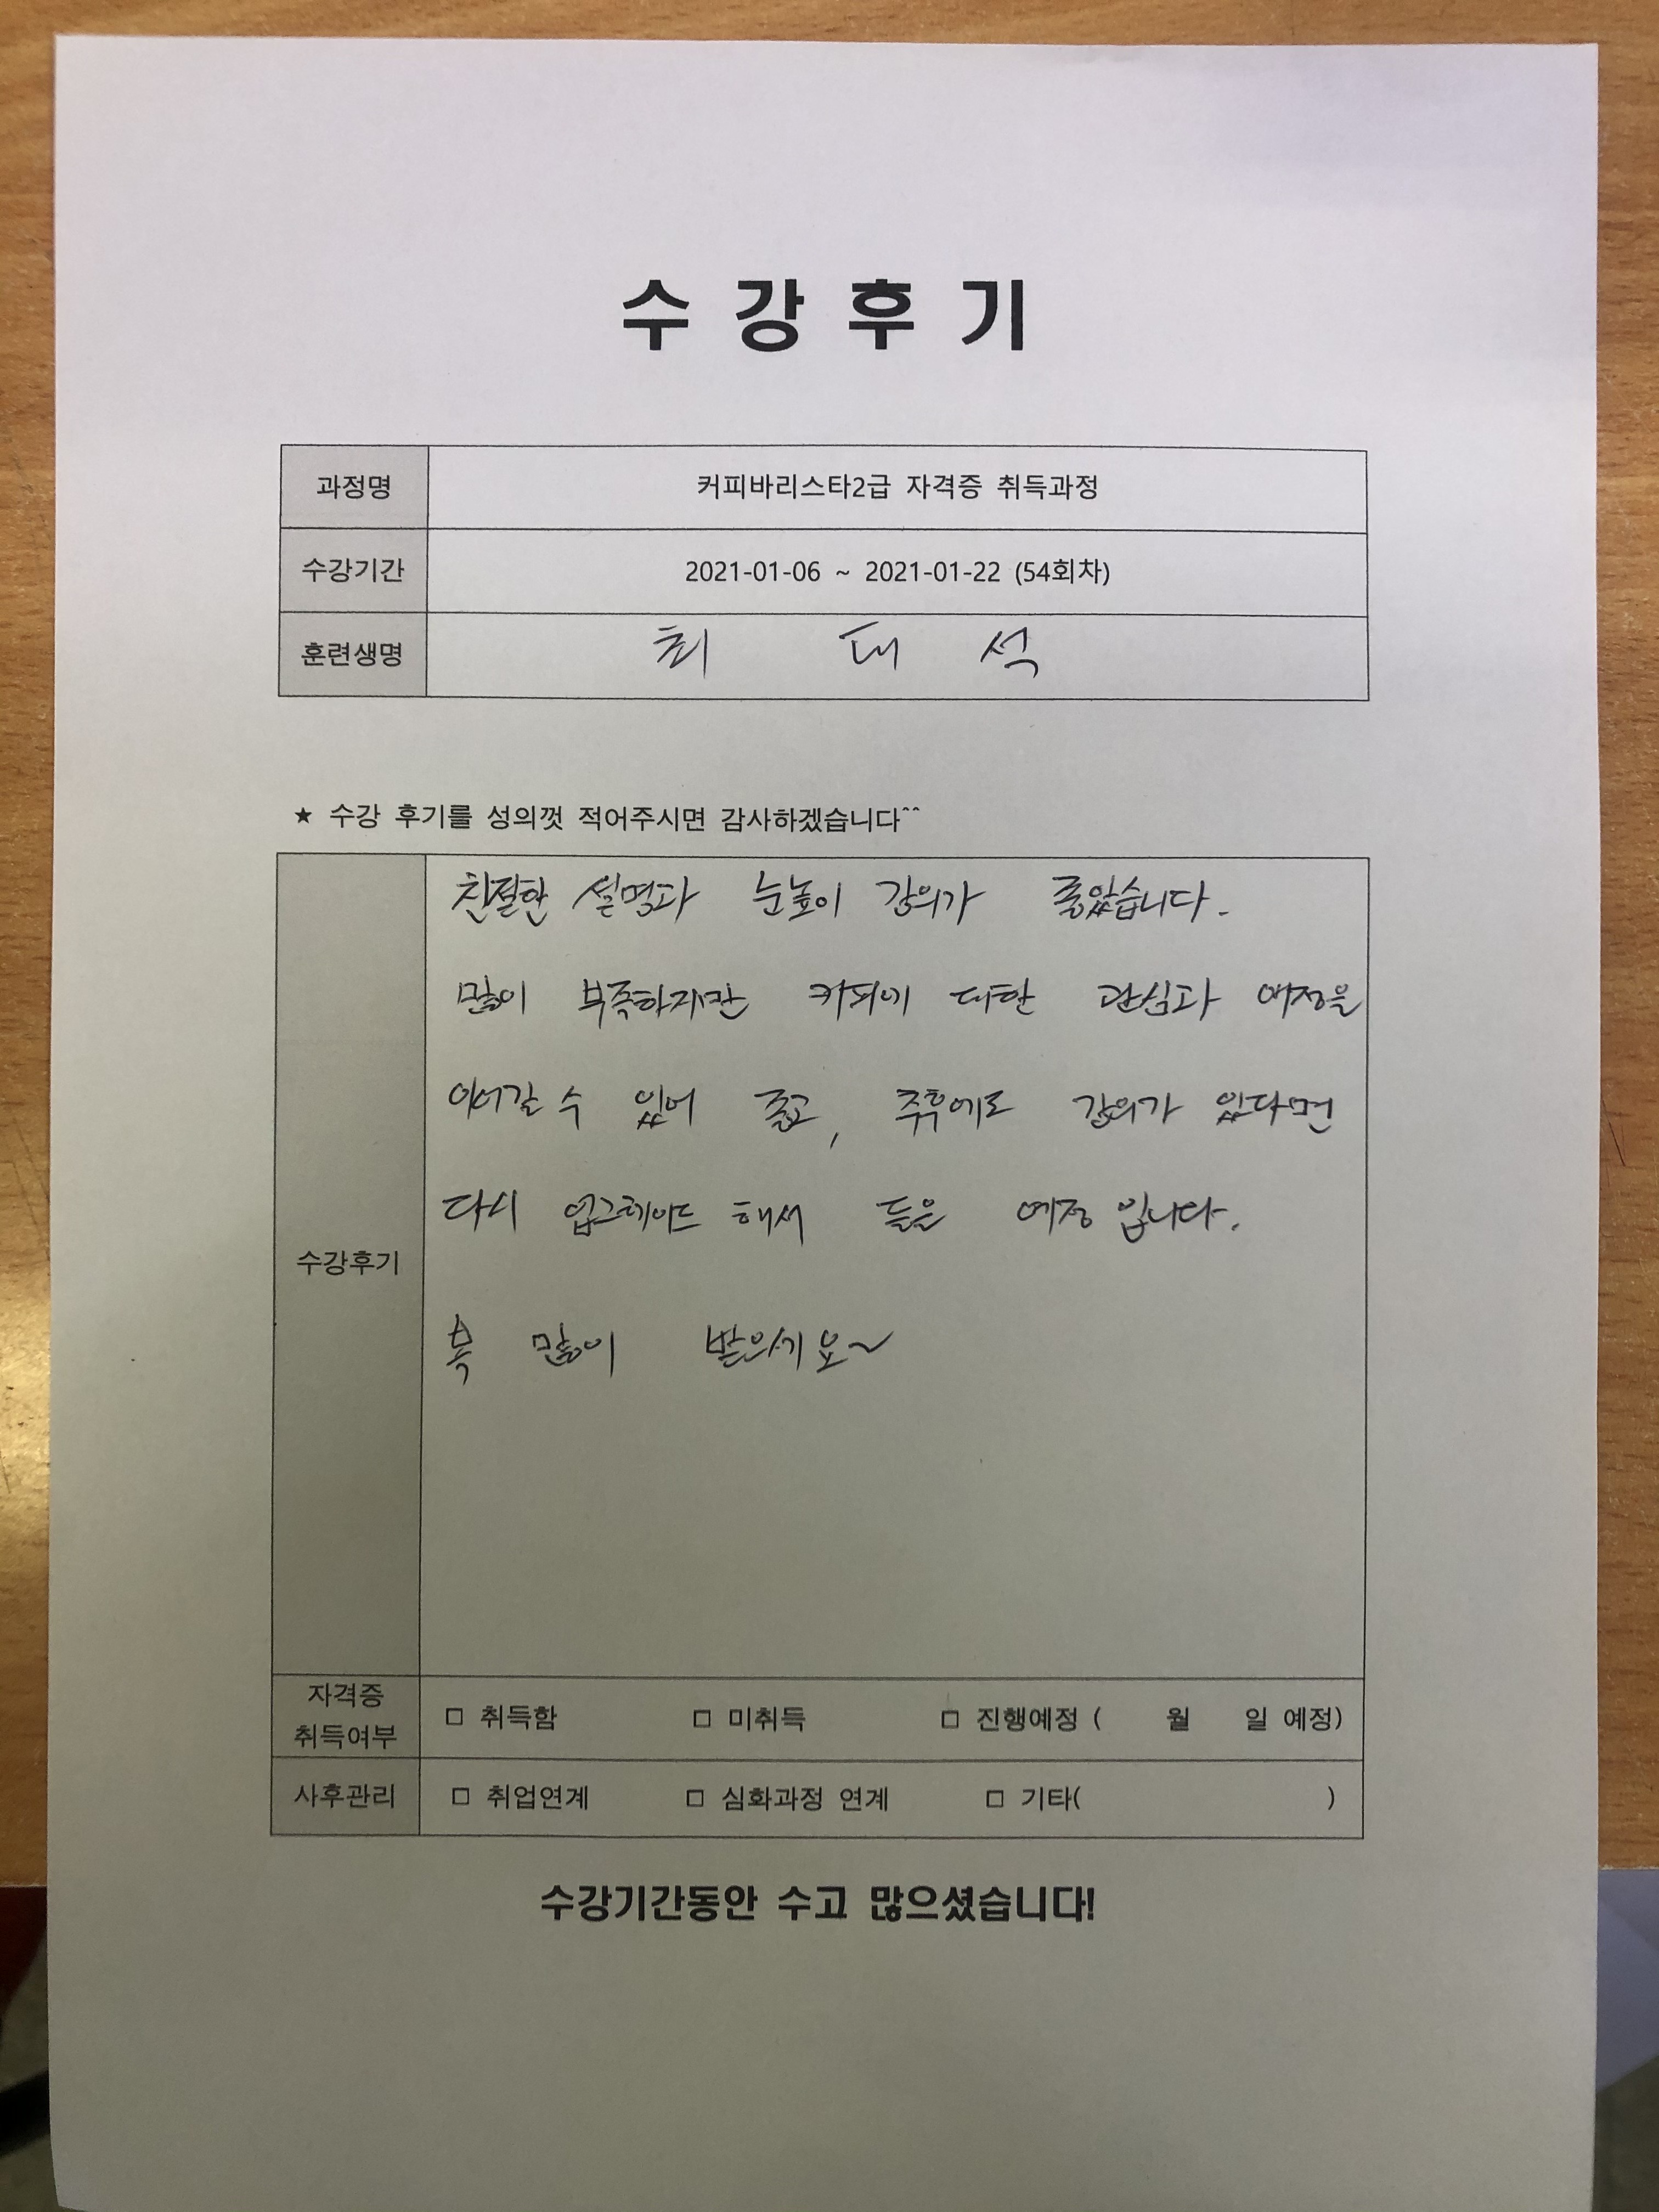 수강후기
과정명 커피바리스타2급 자격증 취득과정
수강기간 2021-01-06 ~ 2021-01-22 (54회차)
훈련생명 최 대 석
★ 수강 후기를 성의껏 적어주시면 감사하겠습니다^^
친절한 설명과 눈높이 강의가 좋았습니다.
많이 부족하지만 커피에 대한 관심과 애정을
이어갈 수 있어 좋고, 추후에도 강의가 있다면
다시 업그레이드 해서 들을 예정 입니다.
수강후기
복 많이 받으세요~
자격증 취득여부 □ 취득함 □ 미취득 □ 진행예정 ( 월 일 예정)
사후관리 □ 취업연계 □ 심화과정 연계 □ 기타( )
수강기간동안 수고 많으셨습니다!